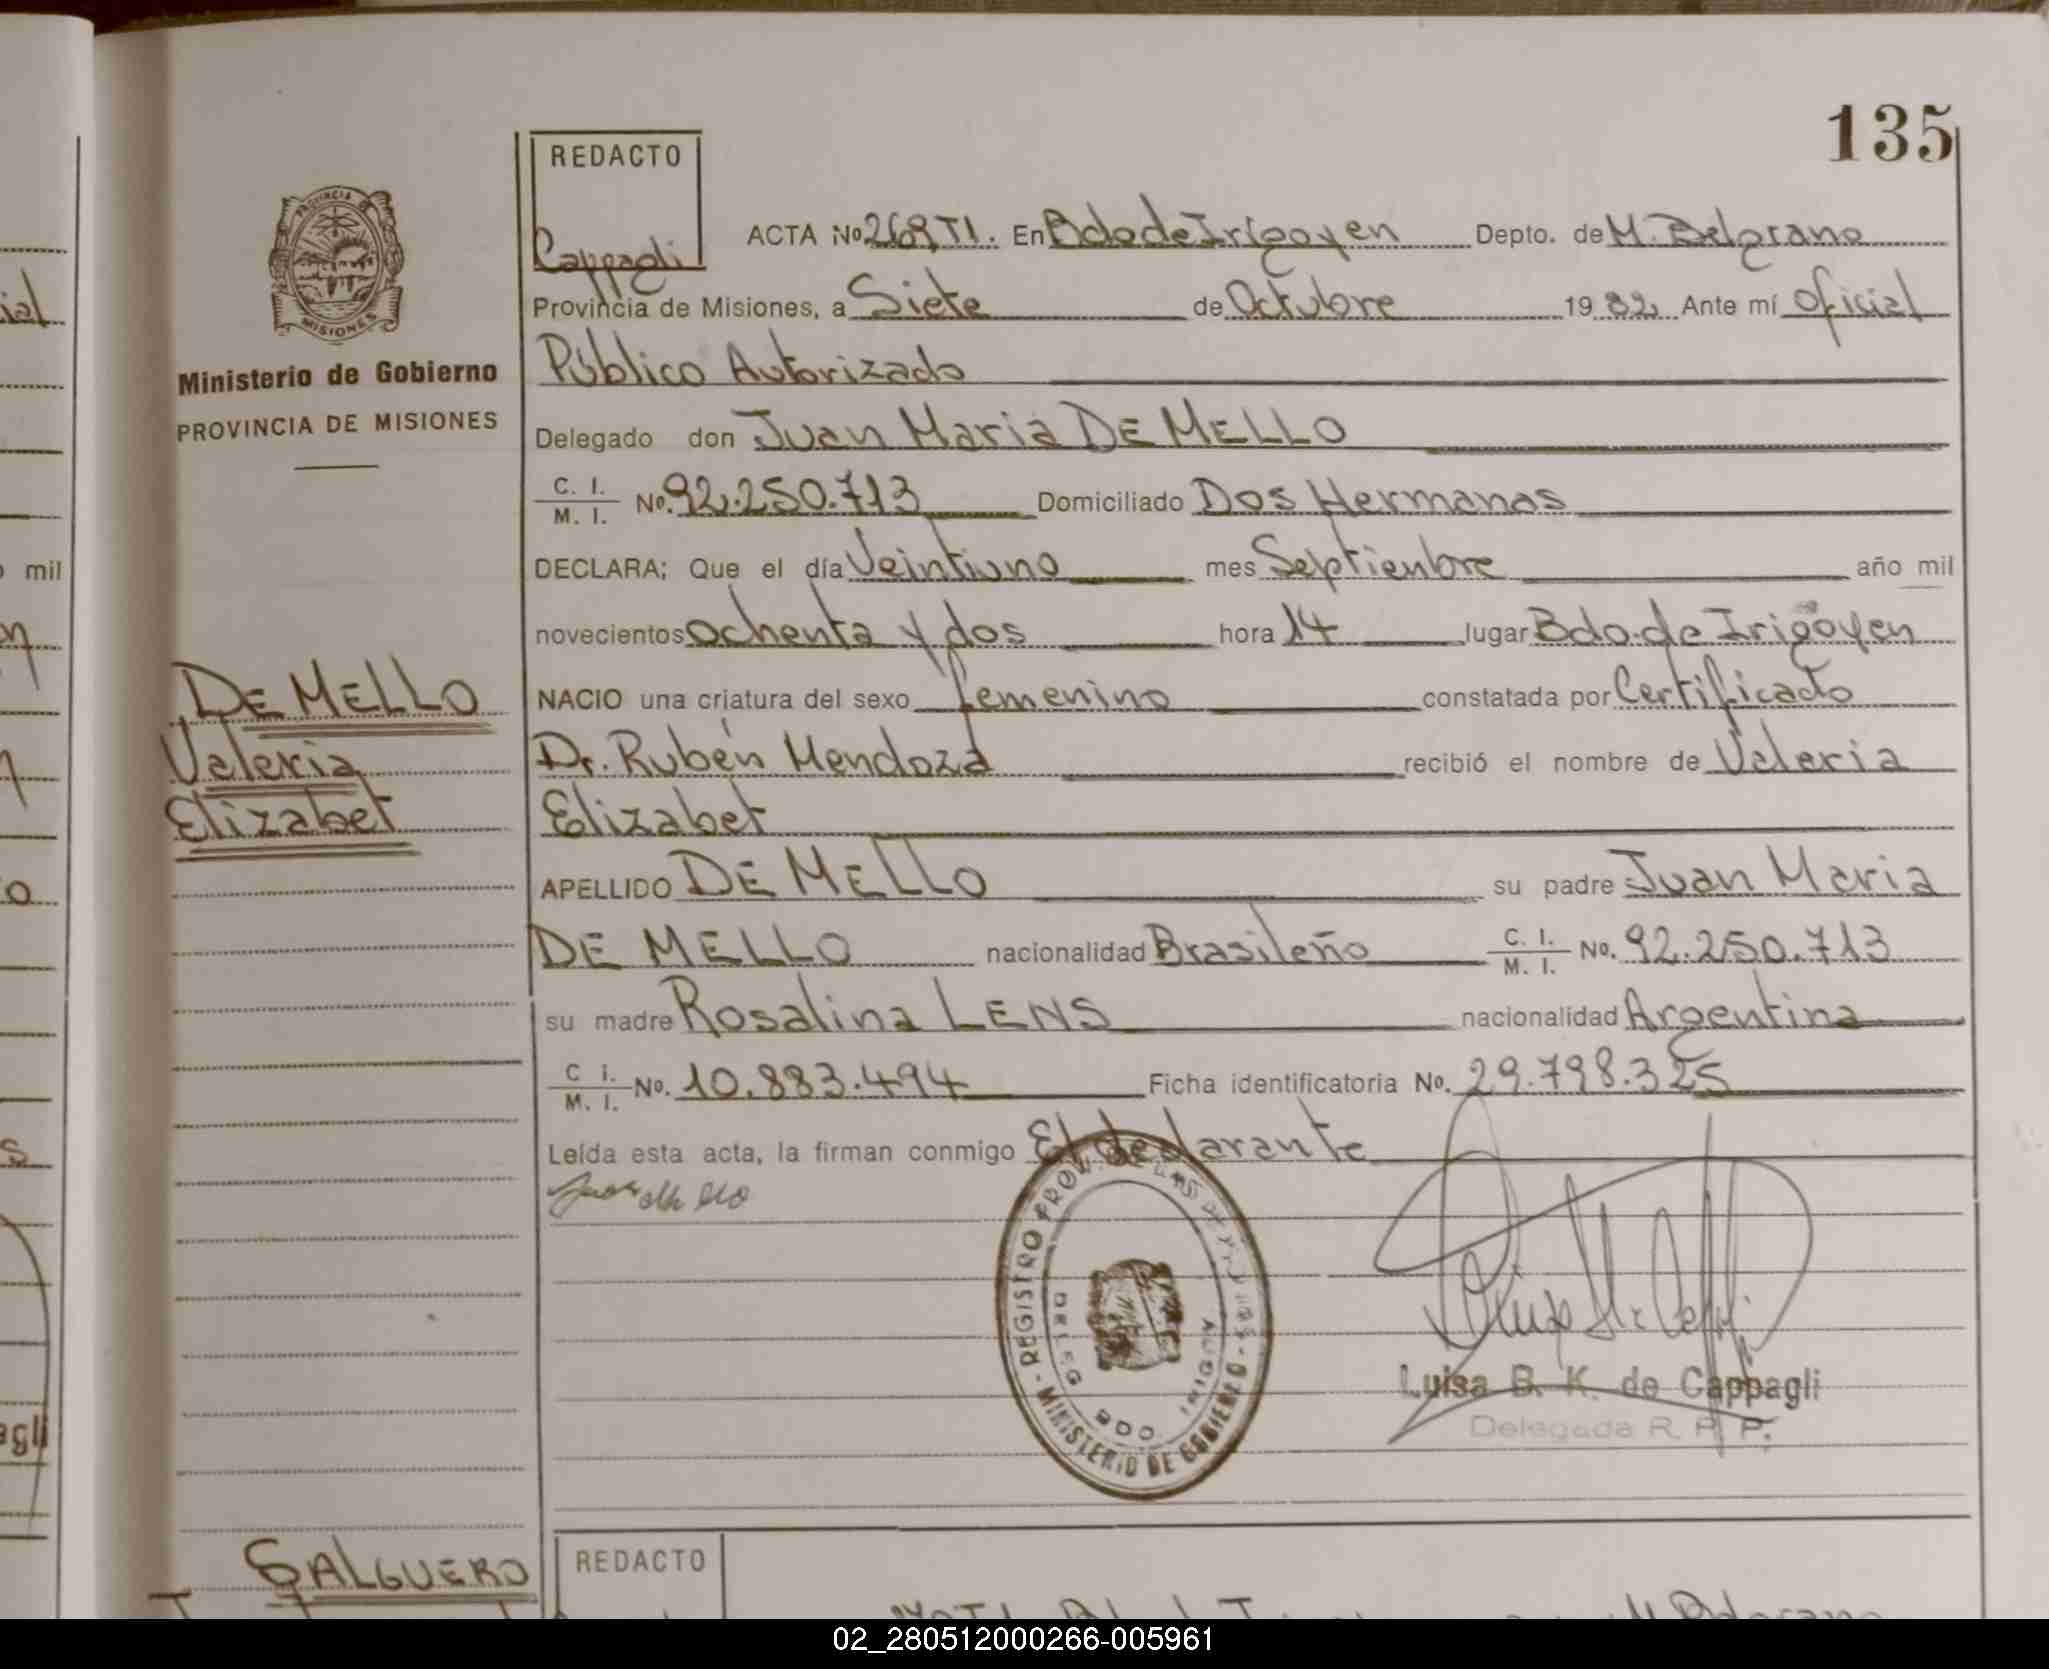 135
REDACTO
Cappagli
ACTA Nº 269, TI. En Bdo de Irigoyen Depto. de M. Belgrano
Provincia de Misiones, a Siete de Octubre 19 82 Ante mí Oficial
Público Autorizado
Delegado don Juan Maria DE MELLO
C. I. / M. I. Nº. 92.250.713 Domiciliado Dos Hermanas
DECLARA; Que el día Veintiuno mes Septiembre año mil
novecientos ochenta y dos hora 14 lugar Bdo. de Irigoyen
NACIO una criatura del sexo femenino constatada por Certificado
Dr. Rubén Mendoza recibió el nombre de Valeria
Elizabet
APELLIDO DE MELLO su padre Juan Maria
DE MELLO nacionalidad Brasileño C. I. / M. I. No. 92.250.713
su madre Rosalina LENS nacionalidad Argentina
C I. / M. I. No. 10.883.494 Ficha identificatoria No. 29.798.325
Leída esta acta, la firman conmigo El declarante
PROVINCIA DE
MISIONES
Ministerio de Gobierno
PROVINCIA DE MISIONES
DE MELLO
Valeria
Elizabet
REGISTRO PROV. DE LAS
- MINISTERIO DE GOBIERNO -
DELEG
BDO
Luisa B. K. de Cappagli
Delegada R. P. P.
SALGUERO
REDACTO
ial
mil
s
agli
02_280512000266-005961